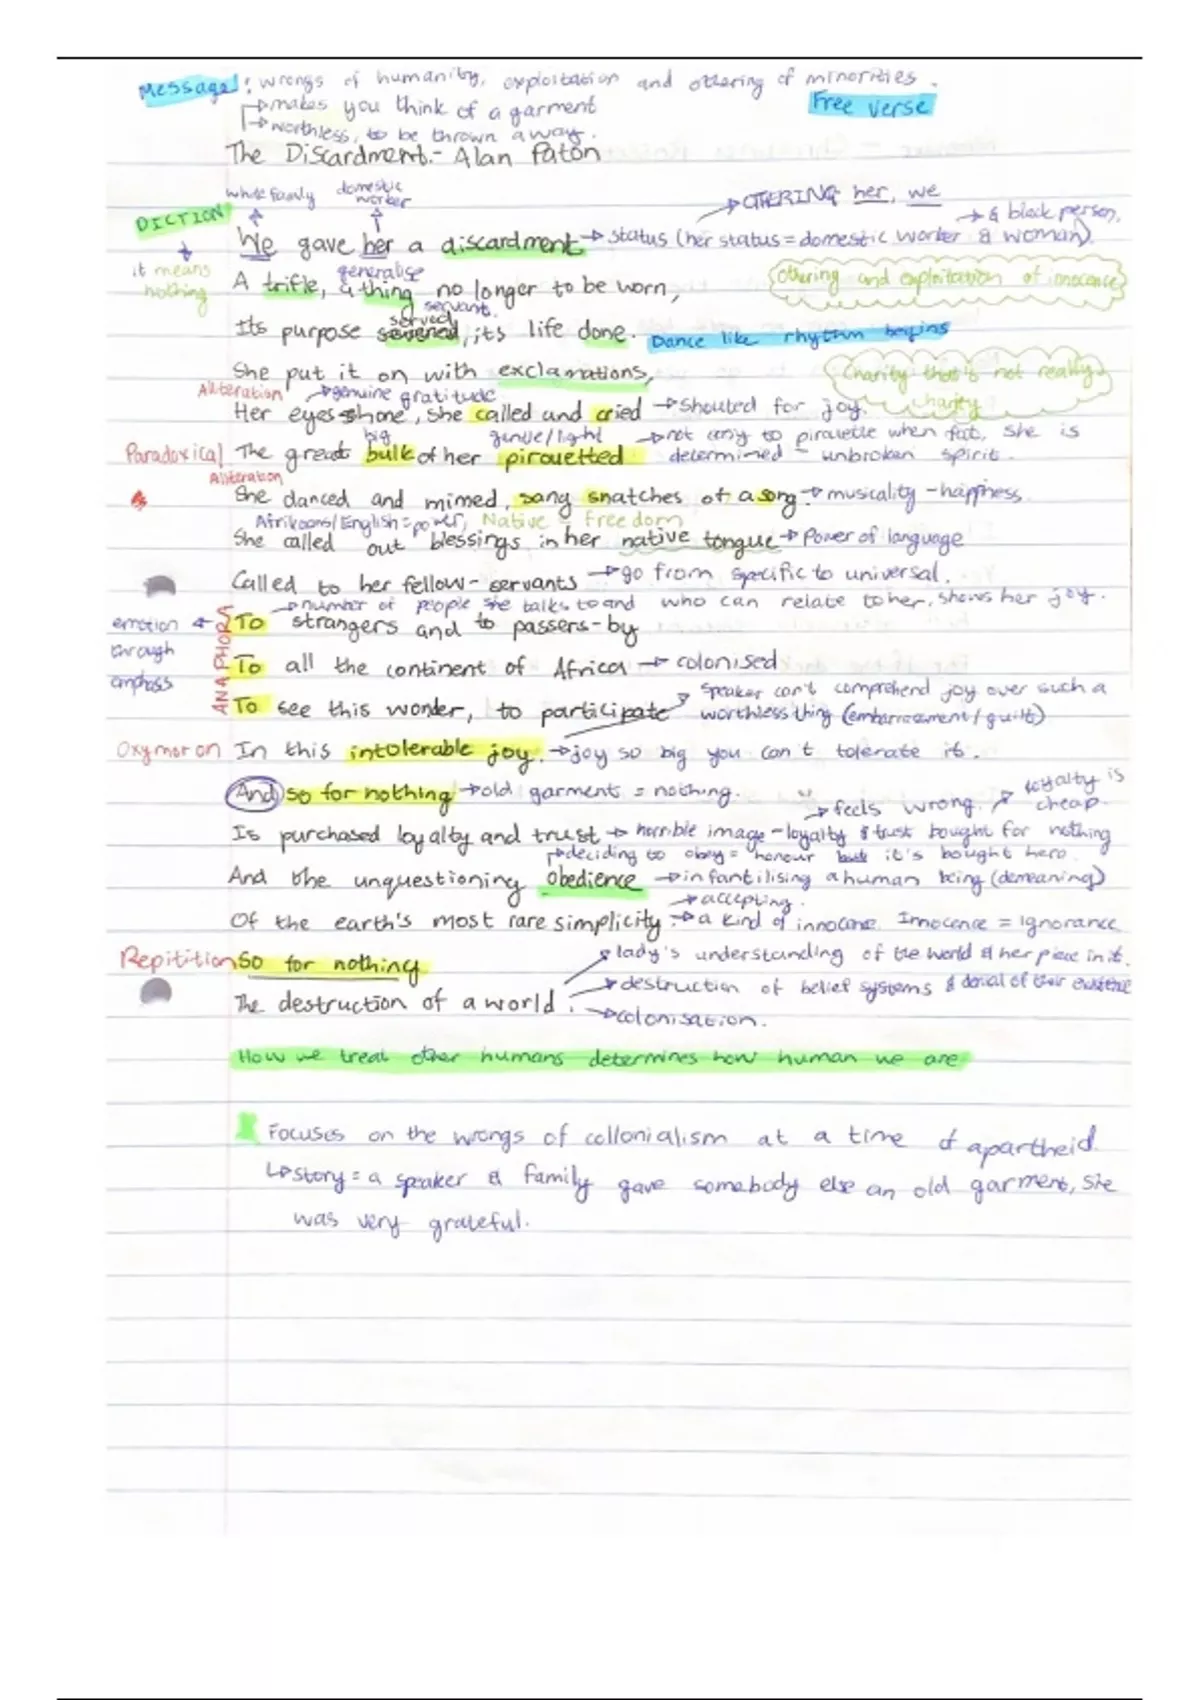 Message : wrongs of humanity, exploitation and othering of minorities.
→ makes you think of a garment
Free verse
→ worthless, to be thrown away.
The Discardment. - Alan Paton
white family
domestic worker
→ OTHERING her, we
→ & black person.
DICTION
We gave her a discardment → status (her status = domestic worker & woman).
it means nothing
generalise
A trifle, a thing no longer to be worn,
othering and exploitation of innocence
servant.
served
Its purpose its life done. Dance like rhythm begins
She put it on with exclamations,
Charity that is not really charity
Aliteration → genuine gratitude
Her eyes shone, she called and cried → Shouted for joy.
big gentle/light → not easy to pirouette when fat, she is
Paradoxical The great bulk of her pirouetted determined - unbroken spirit.
Aliteration
She danced and mimed, sang snatches of a song → musicality - happiness.
Afrikaans/English = power, Native = freedom
She called out blessings in her native tongue → Power of language
Called to her fellow-servants → go from specific to universal.
→ number of people she talks to and who can relate to her, shows her joy.
emotion through emphasis
ANAPHORA
To strangers and to passers-by
To all the continent of Africa → colonised
speaker can't comprehend joy over such a
To see this wonder, to participate worthless thing (embarrassment/guilt)
Oxymoron In this intolerable joy. → joy so big you can't tolerate it.
And so for nothing → old garments = nothing.
→ feels wrong. → loyalty is cheap.
Is purchased loyalty and trust → horrible image - loyalty & trust bought for nothing
→ deciding to obey = honour but it's bought here.
And the unquestioning obedience → infantilising a human being (demeaning)
→ accepting.
Of the earth's most rare simplicity. → a kind of innocence. Innocence = Ignorance
Repitition So for nothing → lady's understanding of the world & her place in it.
→ destruction of belief systems & denial of their existence
The destruction of a world. → colonisation.
How we treat other humans determines how human we are
Focuses on the wrongs of collonialism at a time of apartheid.
↳ story = a speaker & family gave somebody else an old garment, she
was very grateful.